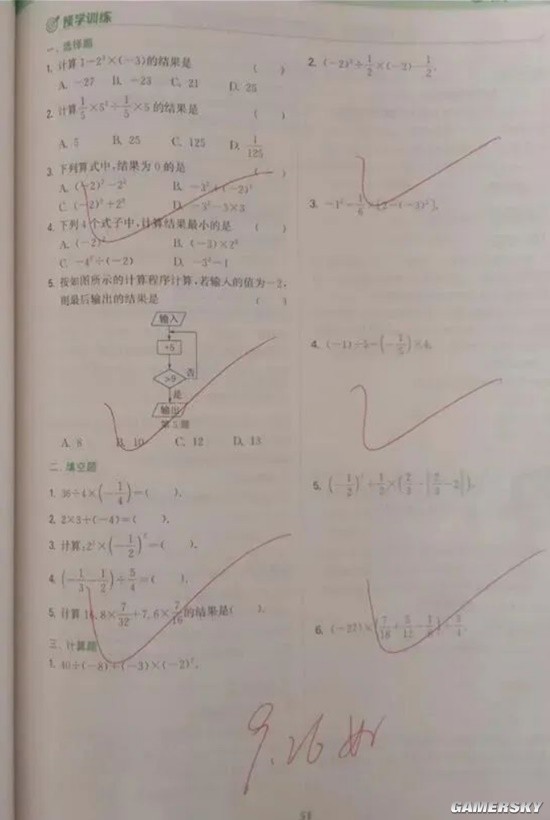 预学训练
一、选择题
1. 计算1-2³×(-3)的结果是 ( )
A. -27 B. -23 C. 21 D. 25
2. 计算1/5×5²÷1/5×5的结果是 ( )
A. 5 B. 25 C. 125 D. 1/125
3. 下列算式中,结果为0的是 ( )
A. (-2)²-2² B. -3²+(-2)²
C. (-2)²+2² D. -3²-3×3
4. 下列4个式子中,计算结果最小的是 ( )
A. (-2)² B. (-3)×2²
C. -4²÷(-2) D. -3²-1
5. 按如图所示的计算程序计算,若输入的值为-2,
则最后输出的结果是 ( )
输入
+5
>9 否
是
输出
第5题
A. 8 B. 10 C. 12 D. 13
二、填空题
1. 36÷4×(-1/4)=( ).
2. 2×3+(-4)=( ).
3. 计算:2²×(-1/2)²=( ).
4. (-1/3-1/2)÷5/4=( ).
5. 计算16.8×7/32+7.6×7/16的结果是( ).
三、计算题
1. 40÷(-8)+(-3)×(-2)².
3. -1²-1/6×[2-(-3)²].
51
GAMERSKY